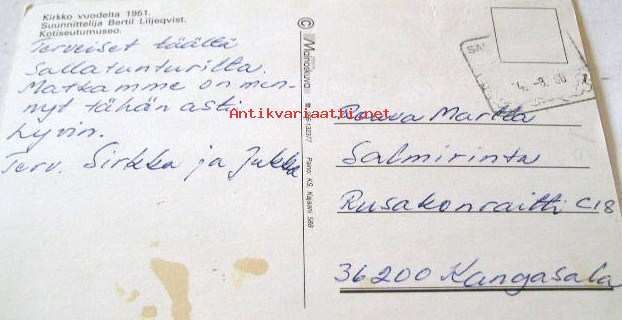 Kirkko vuodelta 1951.
Suunnittelija Bertil Liljeqvist.
Kotiseutumuseo.
Terveiset täältä
Sallatunturilta.
Matkamme on men-
nyt tähän asti
hyvin.
Terv. Sirkka ja Jukka
© Mainoskuva
Paino: KS, Kajaani
Antikvariaatti.net
Martta
Salmirinta
Rusakonraitti C18
36200 Kangasala